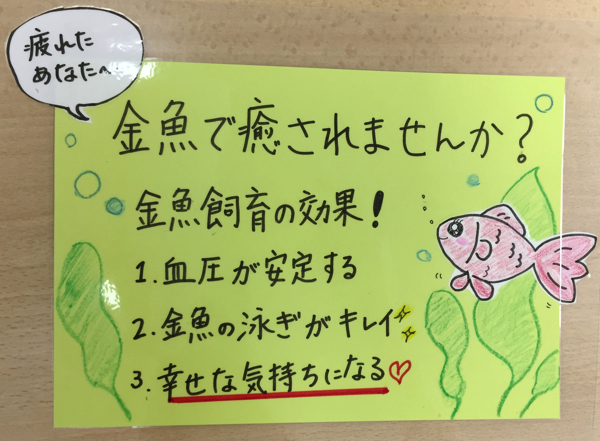 疲れた
あなたへ
金魚で癒されませんか？
金魚飼育の効果！
1.血圧が安定する
2.金魚の泳ぎがキレイ
3.幸せな気持ちになる♡